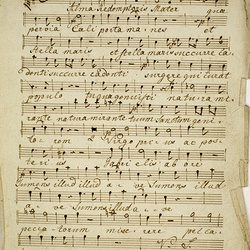 Alma Redemptoris Mater quae
pervia Caeli porta manes et
Stella maris et stella maris succurre ca
denti succurre cadenti surgere qui curat
populo tu quae genuisti natura mi
rante natura mirante tuum Sanctum geni
torem Virgo prius ac pos
terius Gabrielis ab ore
Sumens illud illud a ve Sumens illud
a ve Sumens illud a ve
peccatorum miserere pecca